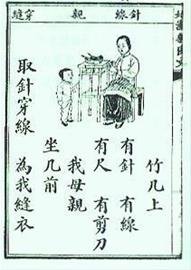 針線 親 穿縫
竹几上
有針 有線
有尺 有剪刀
我母親
坐几前
取針穿線 為我縫衣